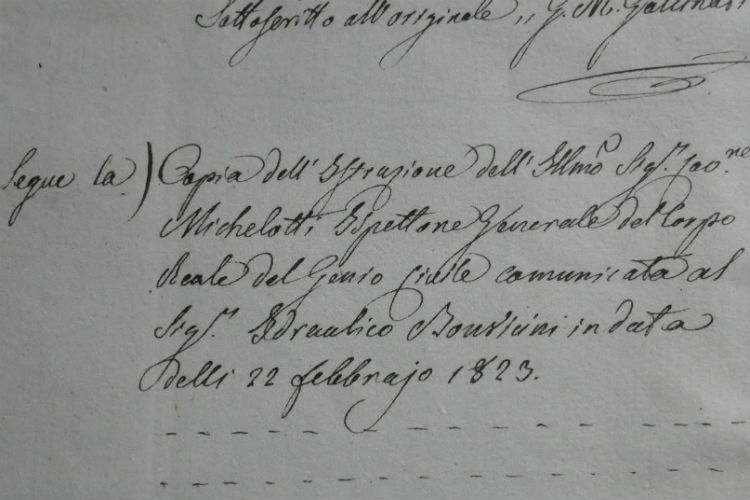 Sottoscritto all'originale ,, G. M.
Segue la ) Copia dell' Istruzione dell' Illmo Sigr.
Michelotti Ispettore Generale del Corpo
Reale del Genio Civile comunicata al
Sigr. Idraulico in data
delli 22 febbrajo 1823.